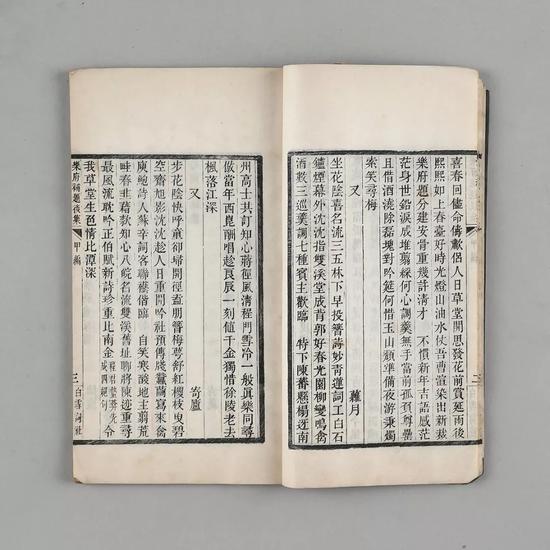 喜春回儘命儔歡侶人日草堂開思發花前賞延雨後
熙熙如上春臺好時光燈山油水仗吾曹渲染出新裁
樂府題分建安骨重幾許清才　不慣新年吉語感茫
茫身世鉛淚成堆翦綵何心調羹無手當前孤負尊罍
且借酒澆除磊塊對吟筵何惜玉山頹準備夜游秉燭
索笑尋梅
又　蘿月
坐花陰喜名流三五林下早投簪蒔妙青蓮詞工白石
鑪煙幕外沈沈指雙溪堂成背郭好春光園柳變鳴禽
酒數三巡羹調七種賓主歡臨　特下陳蕃懸榻迓南
三
州高士共訂知心蔣徑風清程門雪冷一般眞樂同尋
倣當年西崑酬唱趁良辰一刻値千金獨惜徐陵老去
楓落江深
又　奇廬
步花陰快呼童卻埽開徑盍朋簪梅萼舒紅櫻枝曳碧
空齋旭影沈沈趁人日重開吟社預傳牋蠶繭寫來禽
庾鮑詩人蘇辛詞客聯襼偕臨　自笑寒酸地主翦荒
畦春韭藉款知心八皖名流雙溪舊址聊將陳迹重尋
最風流耽吟正伯賦新詩珍重比南金　令
我草堂生色情比潭深
樂府補題後集　甲編　三　白雪詞社